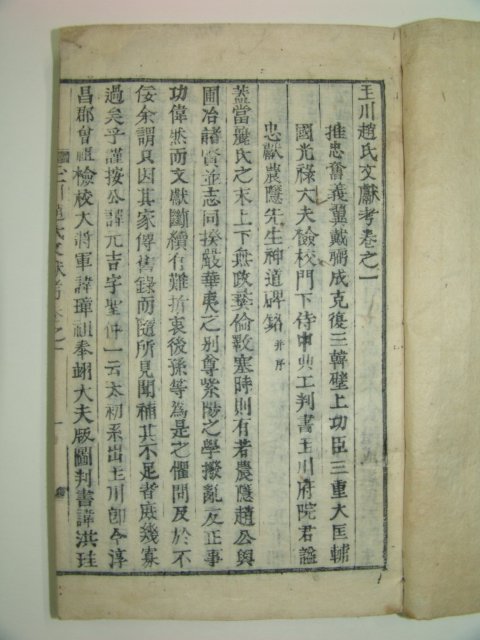 玉川趙氏文獻考卷之一
推忠奮義翼戴弼成克復三韓壁上功臣三重大匡輔
國光祿大夫檢校門下侍中典工判書玉川府院君謚
忠獻農隱先生神道碑銘 并序
盖當麗氏之末上下無政彛倫斁塞時則有若農隱趙公與
圃冶諸賢並志同揆嚴華夷之別尊紫陽之學撥亂反正事
功偉然而文獻斷續有難折衷後孫等為是之懼問及於不
佞余謂只因其家傳舊錄而隨所見聞補其不足者庶幾寡
過矣乎謹按公諱元吉字聖仲一云太初系出玉川卽今淳
昌郡曾祖檢校大將軍諱璋祖奉翊大夫版圖判書諱洪珪
玉川趙氏文獻考 卷之一